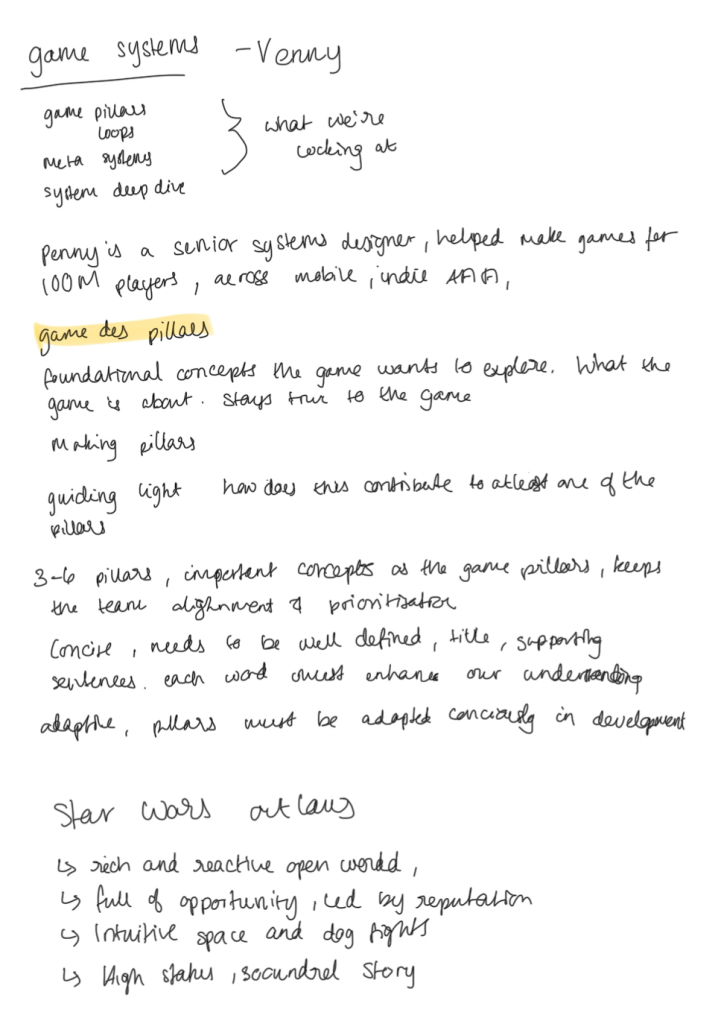 game systems - Venny
game pillars
loops
meta systems
system deep dive
what we're
looking at
Penny is a senior systems designer, helped make games for
100M players, across mobile, indie AAA,
game des pillars
foundational concepts the game wants to explore. What the
game is about. Stays true to the game
Making pillars
guiding light how does this contribute to atleast one of the
pillars
3-6 pillars, important concepts as the game pillars, keeps
the team alighnment & prioritisation
Concise, needs to be well defined, title, supporting
sentences. each word must enhance our understanding
adaptive, pillars must be adapted conciously in development
Star Wars outlaws
↳ rich and reactive open world,
↳ full of opportunity, led by reputation
↳ Intuitive space and dog fights
↳ High stakes, scoundrel story